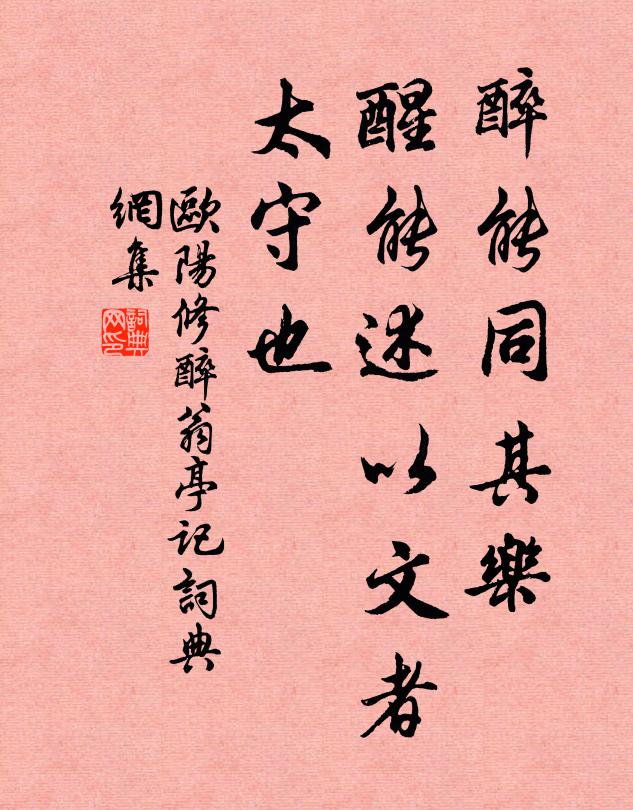 醉能同其樂
醒能述以文者
太守也
歐陽修醉翁亭記詞典
網集
詞典
网印